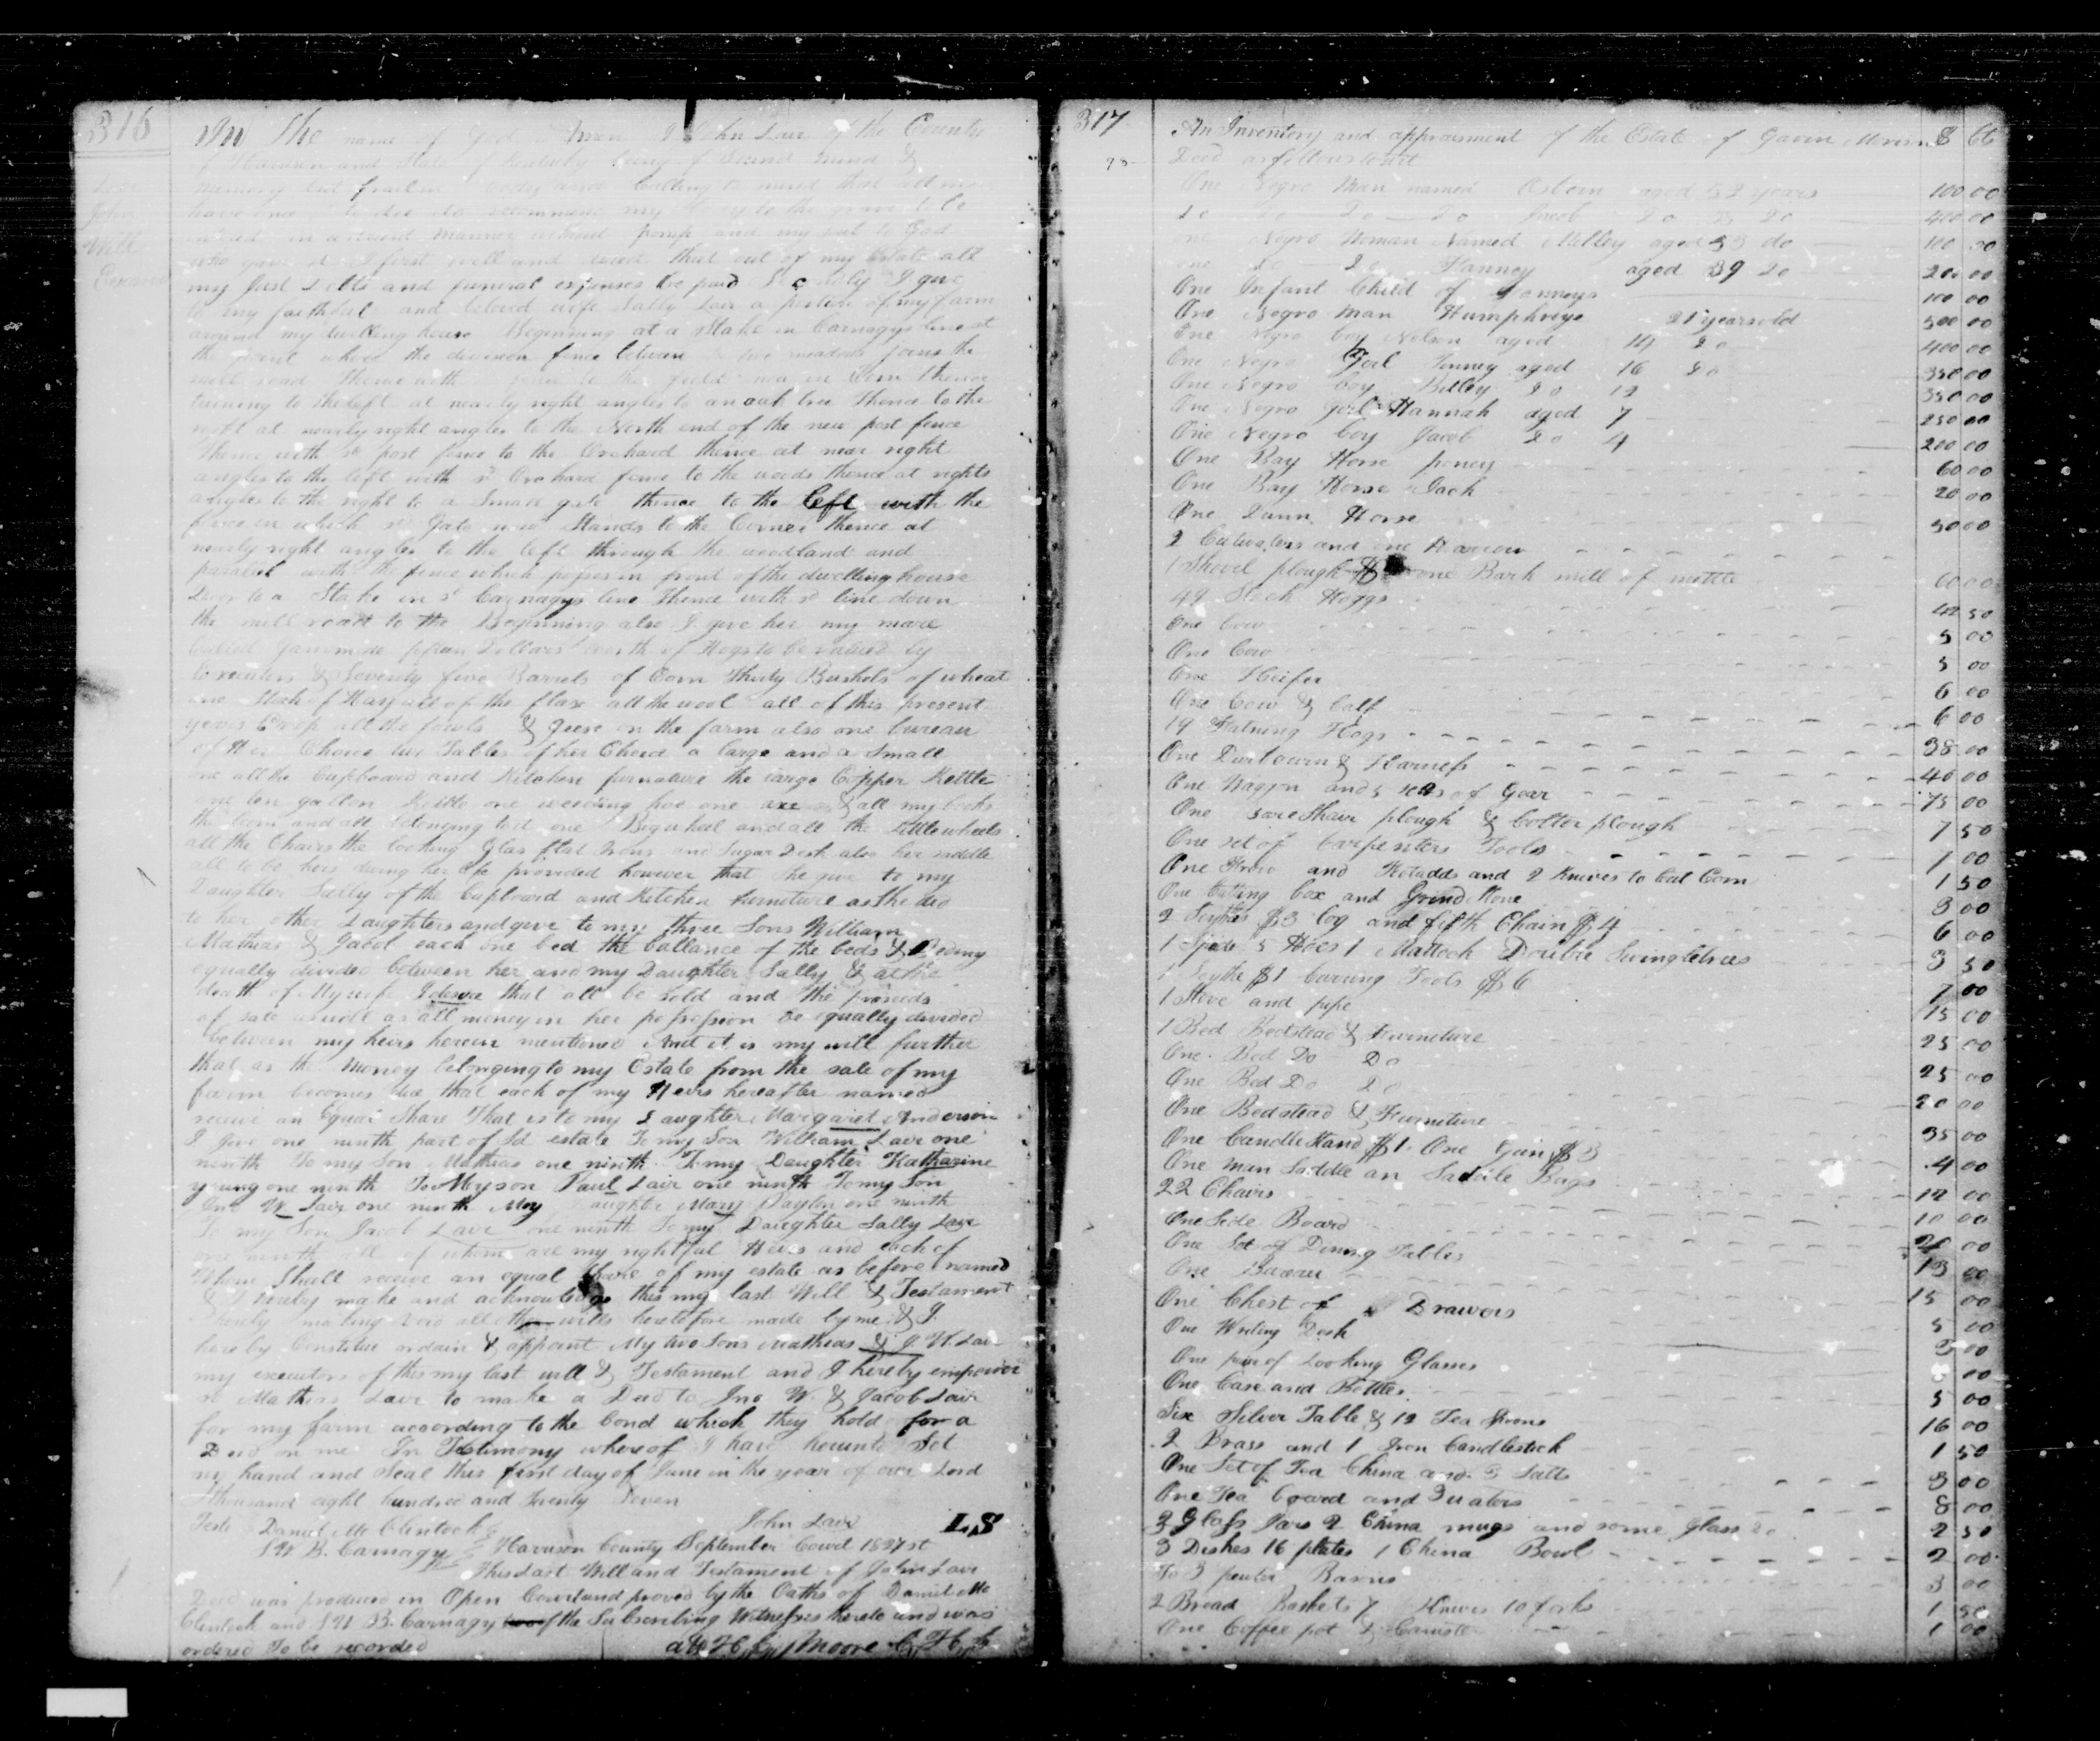 316
In The name of God Amen I John Lair of the County
of Harrison and State of Kentucky being of Sound mind &
memory but frail in body and Calling to mind that all men
have once to die do recommend my body to the grave to be
intered in a decent manner without pomp and my soul to God
who gave it first I will and desire that out of my Estate all
my Just Debts and funeral expenses be paid Secondly I give
to my faithful and beloved wife Sally Lair a portion of my farm
around my dwelling house Beginning at a Stake in Carnagys line at
the point where the division fence between the two meadows joins the
mill road Thence with fence to the field now in Corn thence
turning to the left at nearly right angles to an oak tree Thence to the
right at nearly right angles to the North end of the new post fence
Thence with sd post fence to the Orchard thence at near right
angles to the left with sd Orchard fence to the woods thence at rights
angles to the right to a Small gate thence to the left with the
fence in which sd Gate now Stands to the Corner thence at
nearly right angles to the left through the woodland and
paralel with the fence which passes in front of the dwelling house
Door to a Stake in sd Carnagys line thence with sd line down
the mill road to the Beginning also I give her my mare
called fifteen Dollars worth of Hogs to be valued by
Executors & Seventy five Barrels of Corn Thirty Bushels of wheat
one Stack of Hay all of the flax all the wool all of this present
years Crop all the fowls & Geese on the farm also one bureau
of Her Choice two Tables of her Choice a large and a Small
one all the Cupboard and Kitchen furnature the large Copper Kettle
one ten gallon Kettle one weeding hoe one axe & all my books
the loom and all belonging to it one Big wheel and all the Little wheels
all the Chairs the looking Glas flat Irons and Sugar Desk also her saddle
all to be hers during her life provided however that She give to my
Daughter Sally of the Cupboard and Kitchen furniture as She did
to her other Daughters and give to my three Sons William
Mathias & Jacob each one bed the ballance of the beds & Beding
equally divided between her and my Daughter Sally & at the
death of My wife I desire that all be Sold and the proceeds
of sale as well as all money in her possession be equally divided
between my heirs herein mentioned And it is my will further
that as the Money belonging to my Estate from the sale of my
farm becomes due that each of my Heirs hereafter named
receive an Equal Share That is to my Daughter Margaret Anderson
I give one ninth part of sd estate To my Son William Lair one
ninth To my Son Mathias one ninth To my Daughter Katharine
young one ninth To My son Paul Lair one ninth To my Son
Jno W. Lair one ninth My Daughter Mary Paxton one ninth
To my Son Jacob Lair one ninth To my Daughter Sally Lair
one ninth all of whom are my rightful Heirs and each of
Whom Shall receive an equal Share of my estate as before named
& I hereby make and acknowledge this my last Will & Testament
hereby making void all other wills heretofore made by me & I
hereby Constitue ordain & appoint My two Sons Mathias & J. W. Lair
my executors of this my last will & Testament and I hereby empower
sd Mathias Lair to make a Deed to Jno W. & Jacob Lair
for my farm according to the bond which they hold for a
Deed on me In Testimony whereof I have hereunto Set
my hand and Seal this first day of June in the year of our Lord
thousand eight hundred and Twenty Seven
John Lair L,S
Teste Daniel McClintock
S W B. Carnagy
Harrison County September Court 1827 st
This Last Will and Testament of John Lair
Decd was produced in Open Court and proved by the Oaths of Daniel Mc
Clintock and S W B. Carnagy two of the Subscribing Witnesses hereto and was
ordered To be recorded att H, Moore C, H, C
Lair
John
Will
317
An Inventory and appraisment of the Estate of Gavin Morison $ Cts
Decd as follows towit
One Negro Man named Osborn aged 52 years 100 00
Do Do Do Do Jacob Do Do 400 00
One Negro Woman Named Milley aged 53 do 100 00
One Do Do Hanney aged 39 Do 200 00
One Infant Child of 100 00
One Negro Man Humphreys 21 years old 500 00
One Negro boy Nelson aged 14 Do 400 00
One Negro Girl aged 16 Do 350 00
One Negro boy Billey Do 12 350 00
One Negro Girl Hannah aged 7 250 00
One Negro boy Jacob Do 4 200 00
One Bay Horse poney 60 00
One Bay Horse Jack 20 00
One Dunn Horse 50 00
2 and one Harrow
1 Shovel plough one Bark mill of mettle 60 00
49 Stock Hoggs 42 50
One Cow 5 00
One Cow 5 00
One Heifer 6 00
One Cow & Calf 6 00
19 Fatning Hogs 38 00
One & Harness 40 00
One Waggon and 5 of Gear 75 00
One Shair plough & Colter plough 7 50
One set of Carpenters Tools 7 00
One Frow and and 2 Knives to Cut Corn 1 50
One Cutting box and Grind Stone 3 00
2 Scythes $3 log and fifth Chain $4 6 00
1 Spade 5 Hoes 1 Mattock Double Swingletrees 3 50
1 Scythe $1 Tools $6 7 00
1 Stove and pipe 15 00
1 Bed Bedstead & furniture 25 00
One Bed Do Do 25 00
One Bed Do Do 20 00
One Bedstead & Furniture 35 00
One Candle Stand $1. One Gun $3 4 00
One man Saddle an Saddle Bags 12 00
22 Chairs 10 00
One Side Board 20 00
One Set of Dining Tables 13 00
One Bureau 15 00
One Chest of Drawers 5 00
One Writing Desk 3 00
One pair of Looking Glasses 00
One Case and Bottles 5 00
Six Silver Table & 12 Tea Spoons 16 00
2 Brass and 1 Iron Candlestick 1 50
One Set of Tea China and 3 Salts 3 00
One Tea board and 3 waters 8 00
3 Glass Jars 2 China mugs and some Glass Do 2 50
3 Dishes 16 plates 1 China Bowl 2 00
To 3 pewter Basons 3 00
2 Bread Baskets 7 Knives 10 forks 1 50
One Coffee pot & Canister 1 00